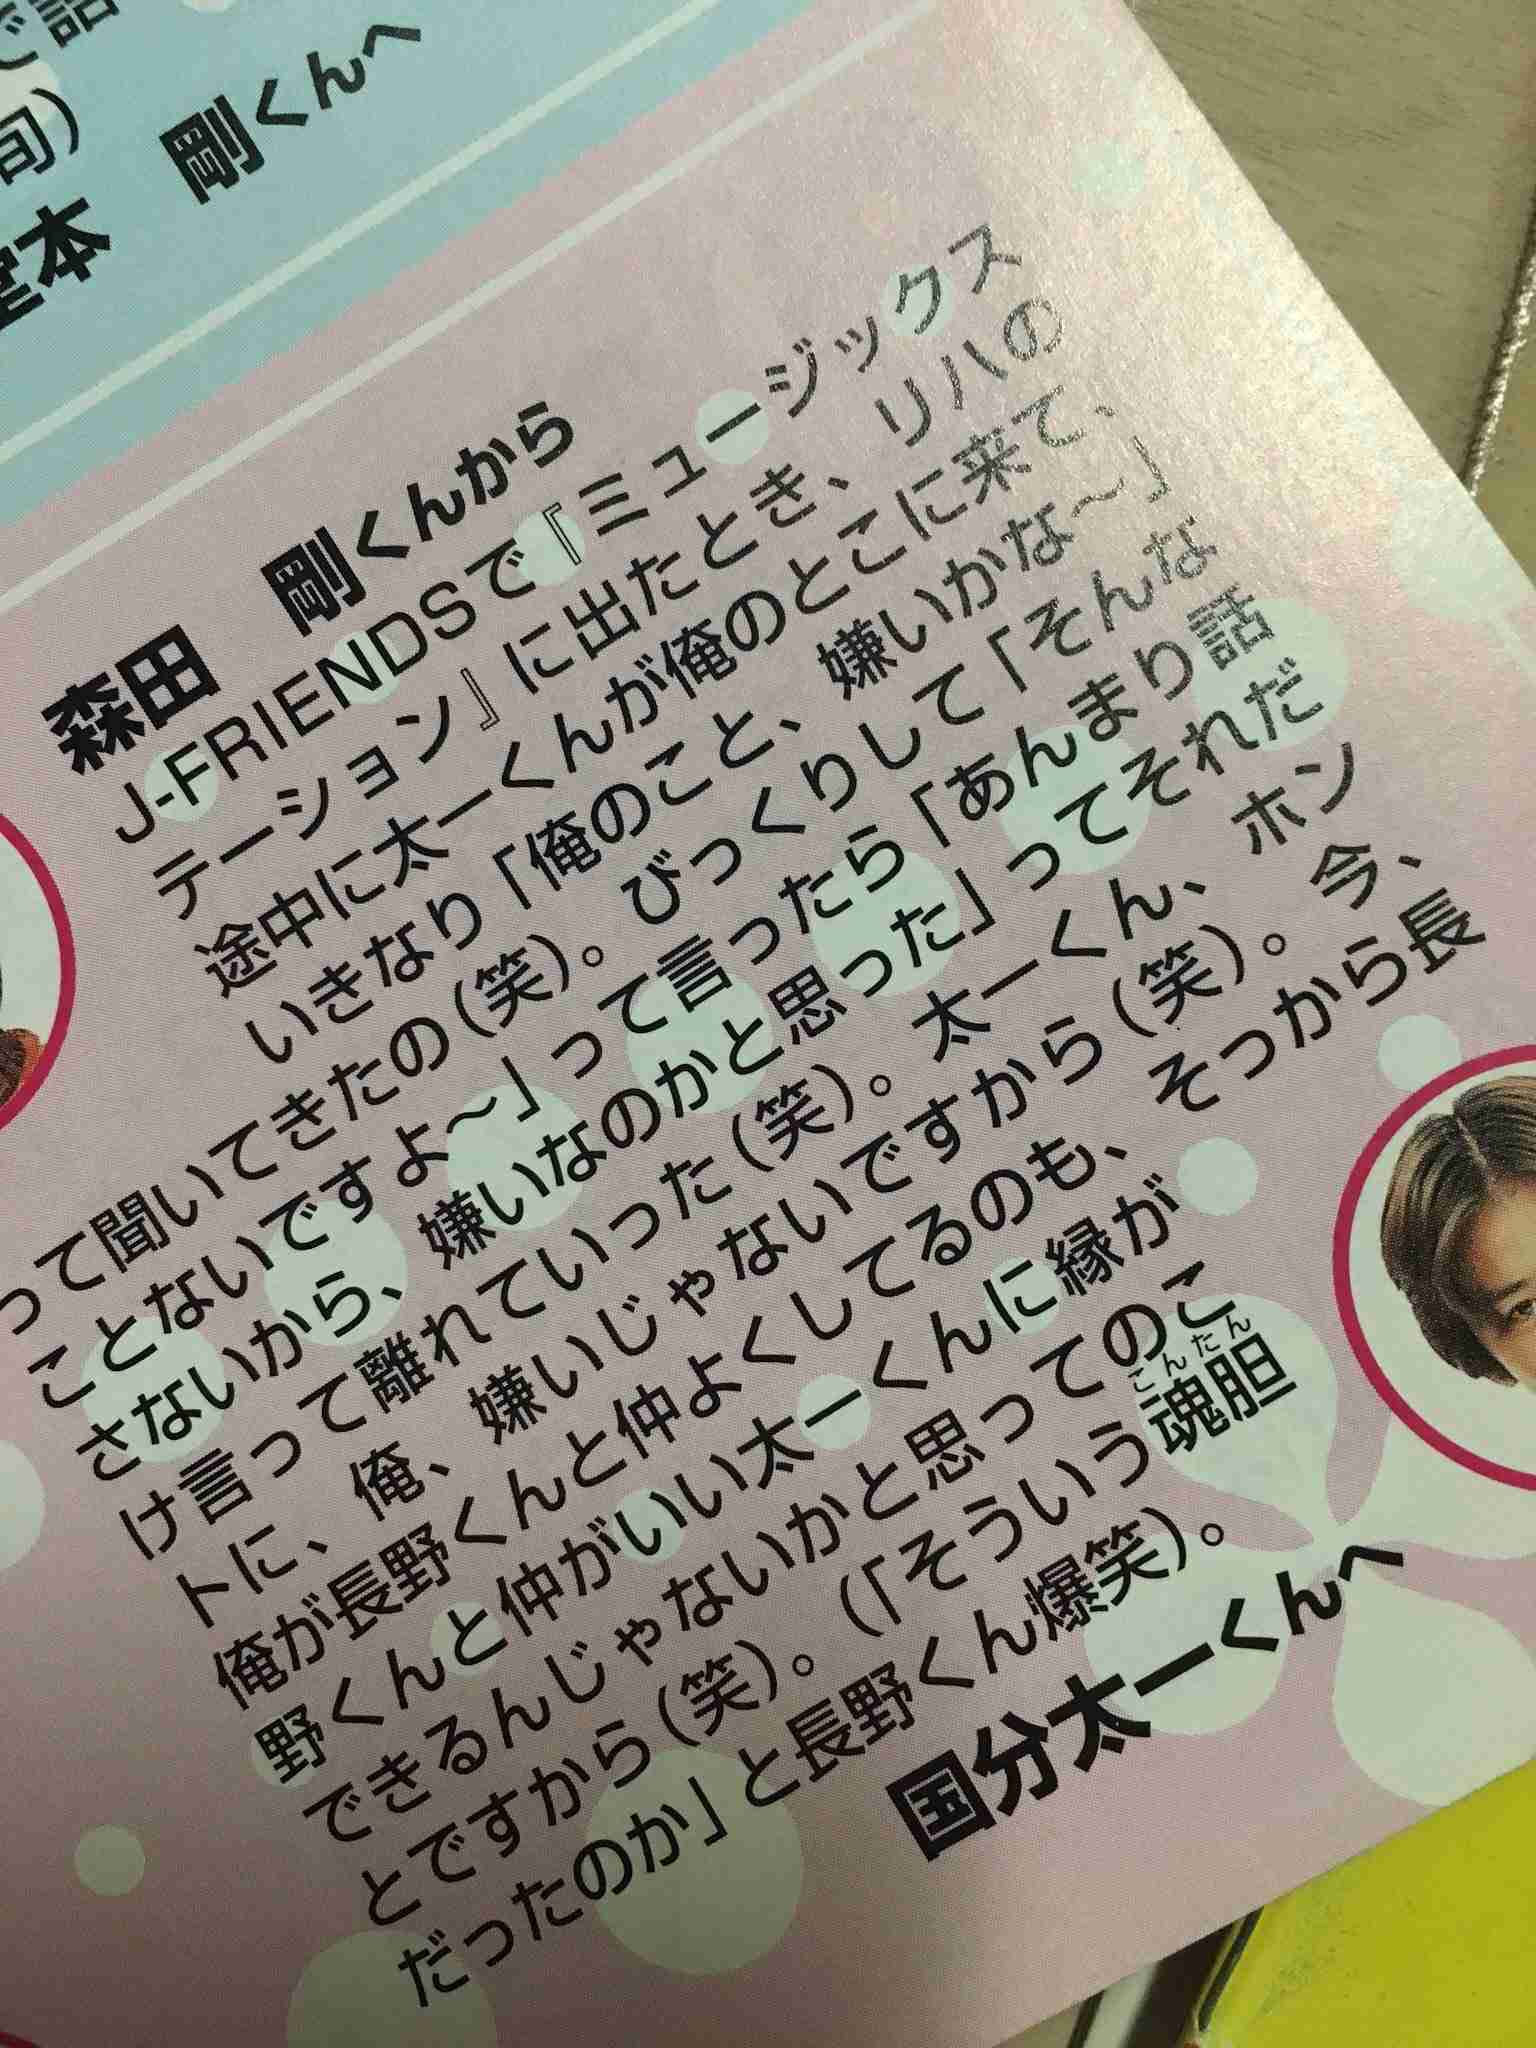 で話
旬）
堂本　剛くんへ
森田　剛くんから
J-FRIENDSで『ミュージックス
テーション』に出たとき、リハの
途中に太一くんが俺のとこに来て、
いきなり「俺のこと、嫌いかな〜」
って聞いてきたの（笑）。びっくりして「そんな
ことないですよ〜」って言ったら「あんまり話
さないから、嫌いなのかと思った」ってそれだ
け言って離れていった（笑）。太一くん、ホン
トに、俺、嫌いじゃないですから（笑）。今、
俺が長野くんと仲よくしてるのも、そっから長
野くんと仲がいい太一くんに縁が
できるんじゃないかと思ってのこ
とですから（笑）。（「そういう魂胆
こんたん
だったのか」と長野くん爆笑）。
国分太一くんへ